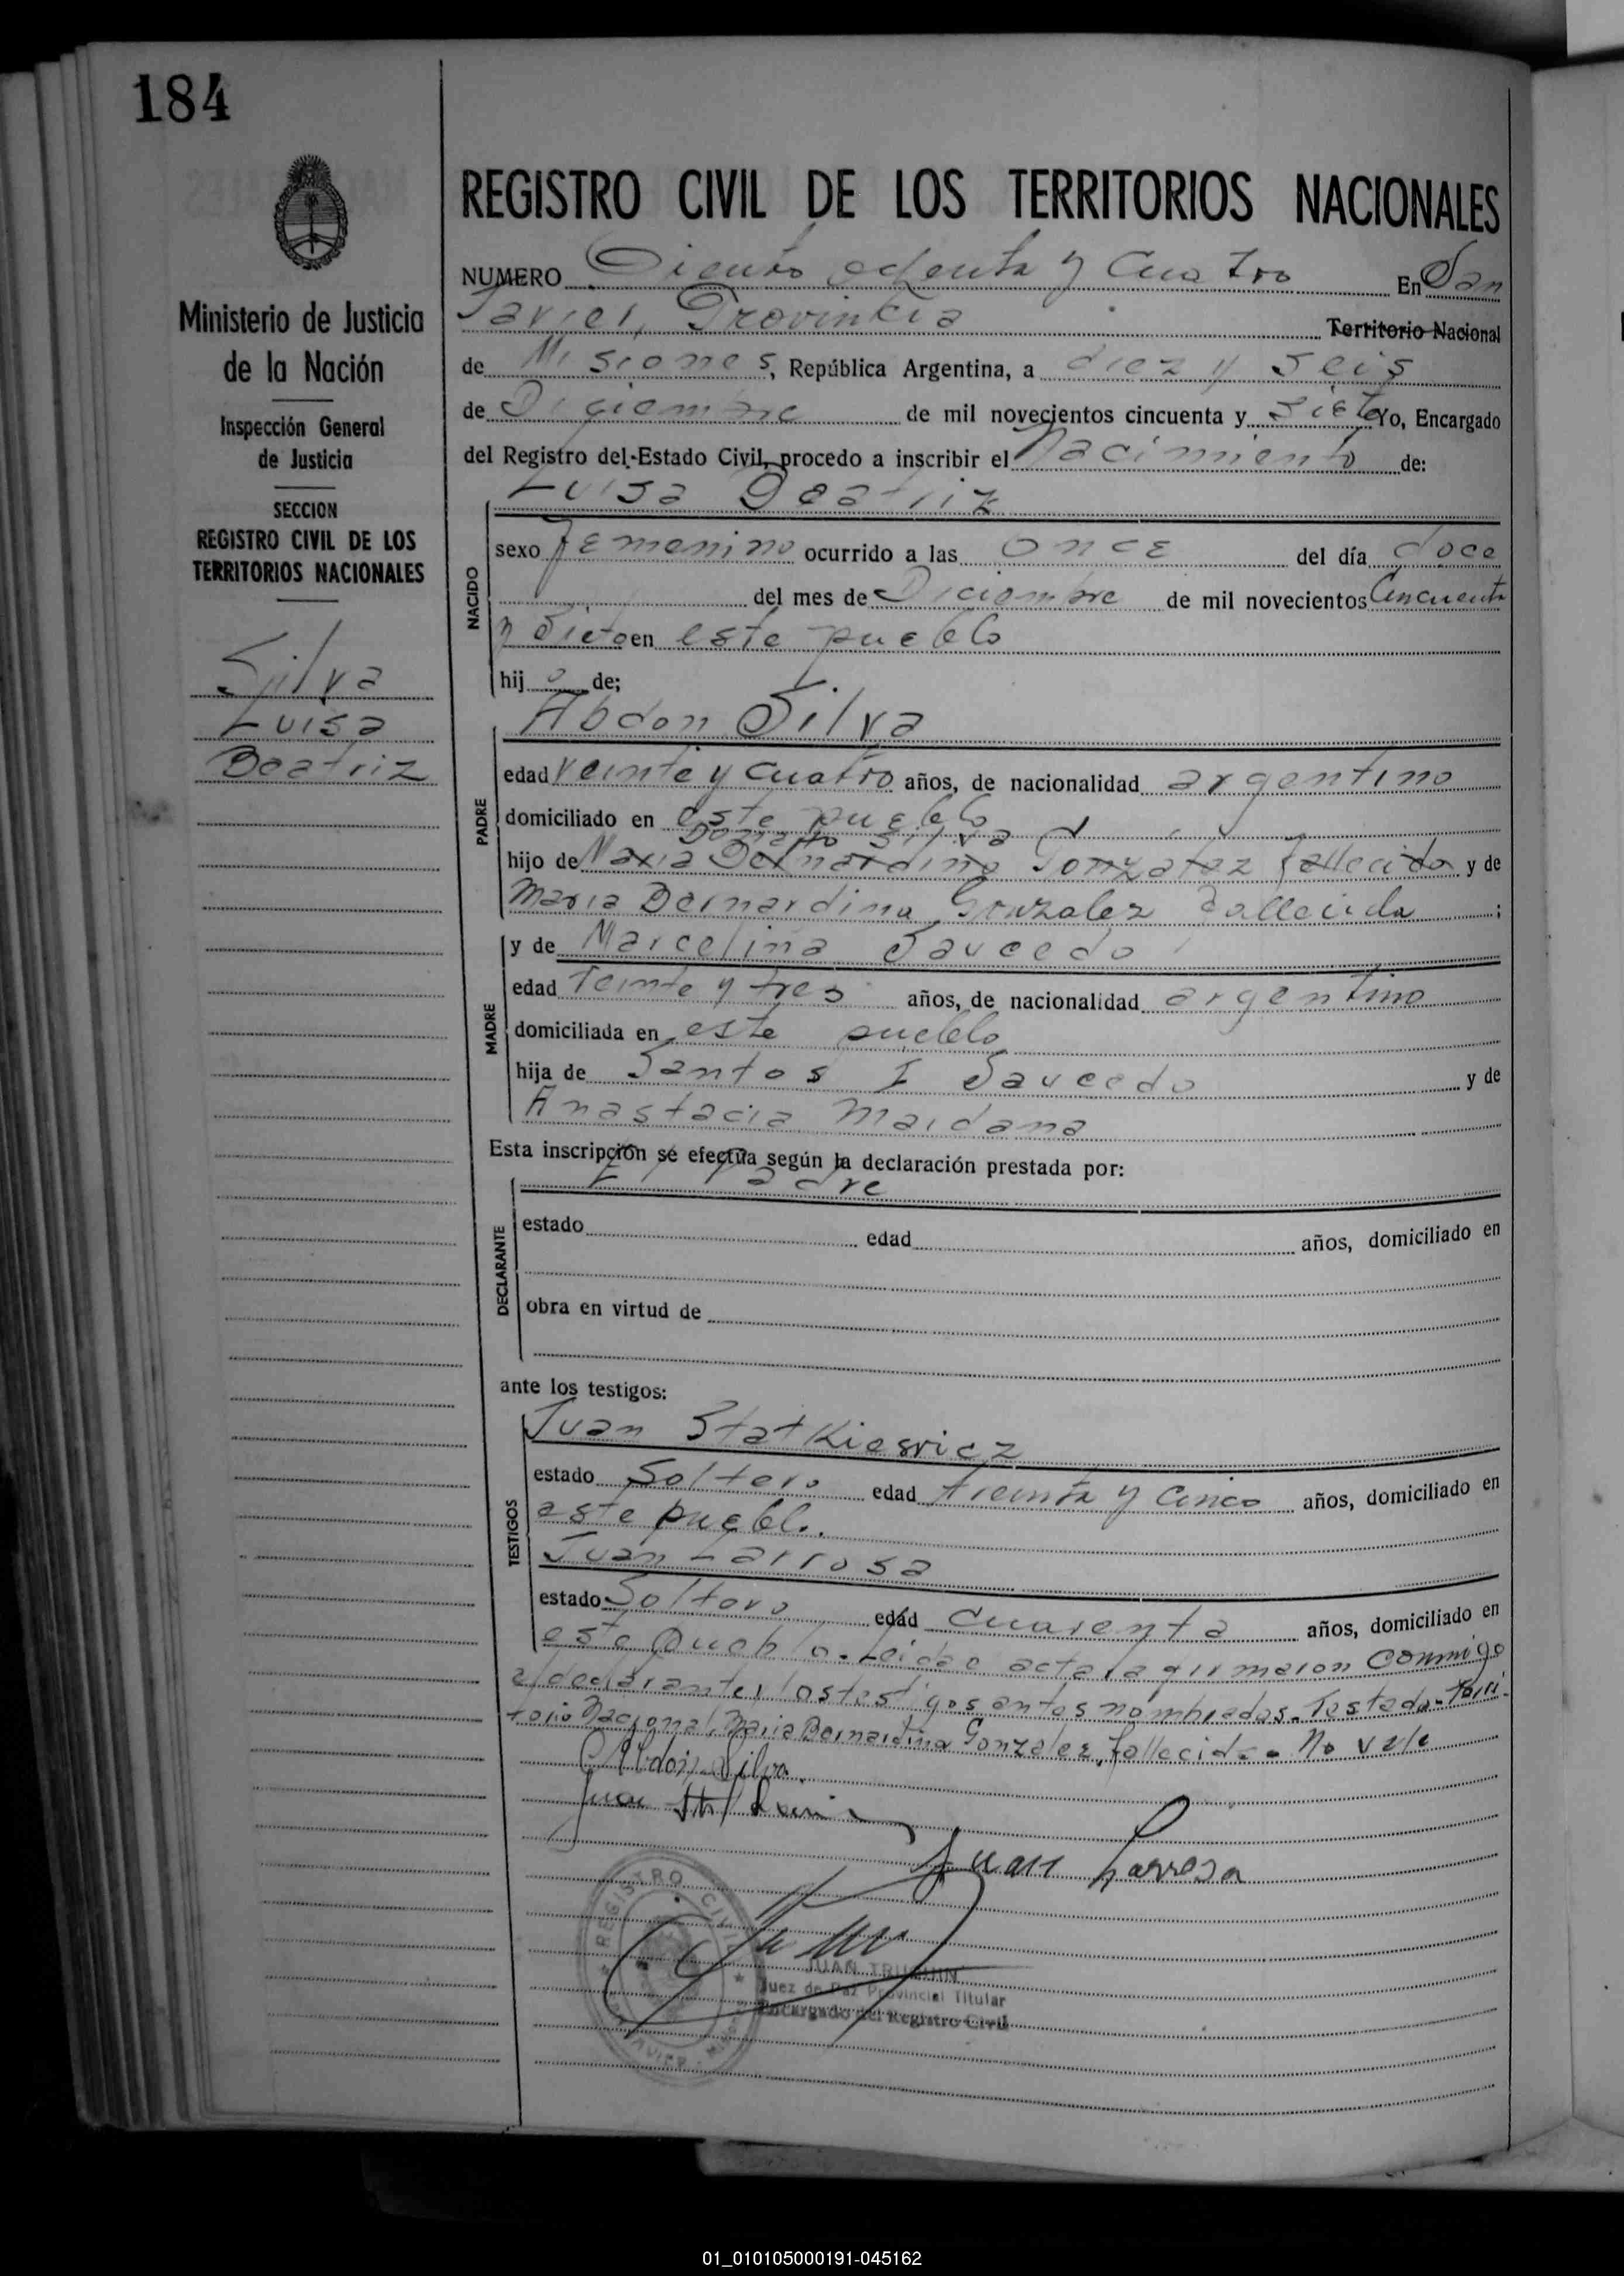 184
REGISTRO CIVIL DE LOS TERRITORIOS NACIONALES
Ministerio de Justicia
de la Nación
Inspección General
de Justicia
SECCION
REGISTRO CIVIL DE LOS
TERRITORIOS NACIONALES
Silva
Luisa
Beatriz
NUMERO Ciento ochenta y Cuatro En San
Javier, Provincia Territorio Nacional
de Misiones, República Argentina, a diez y seis
de Diciembre de mil novecientos cincuenta y siete Yo, Encargado
del Registro del Estado Civil, procedo a inscribir el Nacimiento de:
Luisa Beatriz
NACIDO
sexo femenino ocurrido a las once del día doce
del mes de Diciembre de mil novecientos Cincuenta
y Siete en este pueblo
hij a de;
Abdon Silva
PADRE
edad veinte y cuatro años, de nacionalidad argentino
domiciliado en este pueblo
Donato Silva
hijo de Maria Bernardina Gonzalez fallecida y de
Maria Bernardina Gonzalez fallecida ;
y de Marcelina Saucedo
MADRE
edad veinte y tres años, de nacionalidad argentino
domiciliada en este pueblo
hija de Santos I Saucedo y de
Anastacia Maidana
Esta inscripción se efectúa según la declaración prestada por:
El Padre
DECLARANTE
estado edad años, domiciliado en
obra en virtud de
ante los testigos:
Juan Statkiewicz
TESTIGOS
estado Soltero edad treinta y cinco años, domiciliado en
este pueblo.
Juan Larrosa
estado Soltero edad cuarenta años, domiciliado en
este Pueblo. Leida e acta la firmaron conmigo
el declarante, los testigos antes nombrados. Testado- Terri-
torio Nacional, Maria Bernardina Gonzalez, fallecida. No vale
Abdon Silva
Juan
Juan Larrosa
REGISTRO CIVIL
JUAN
Juez de Paz Provincial Titular
Encargado del Registro Civil
01_010105000191-045162